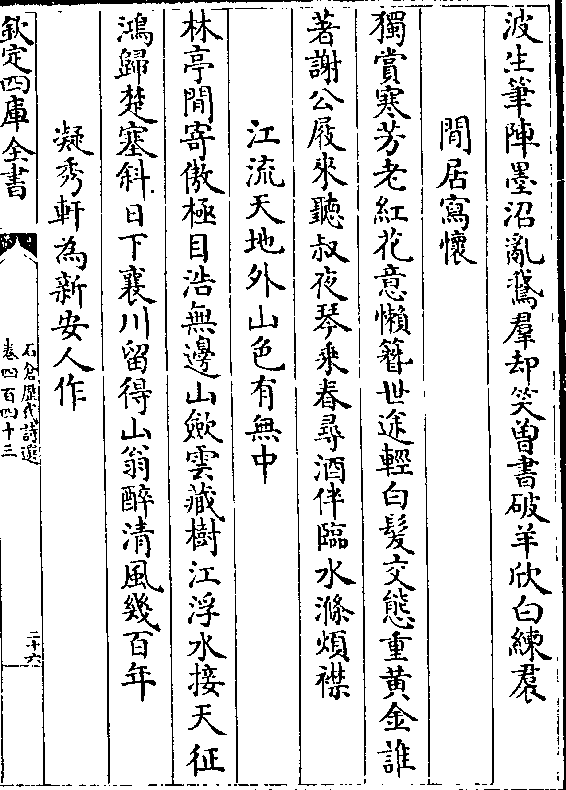 波生筆陣墨沼亂鵞羣却笑曽書破羊欣白練裠
閒居寫懷
獨賞寒芳老紅花意懶簮世途輕白髪交態重黄金誰
著謝公屐來聽叔夜琴乗春尋酒伴臨水滌煩襟
江流天地外山色有無中
林亭閒寄傲極目浩無邊山歛雲藏樹江浮水接天征
鴻歸楚塞斜日下襄川留得山翁醉清風幾百年
凝秀軒為新安人作
欽定四庫全書
石倉歴代詩選
卷四百四十三
二十六